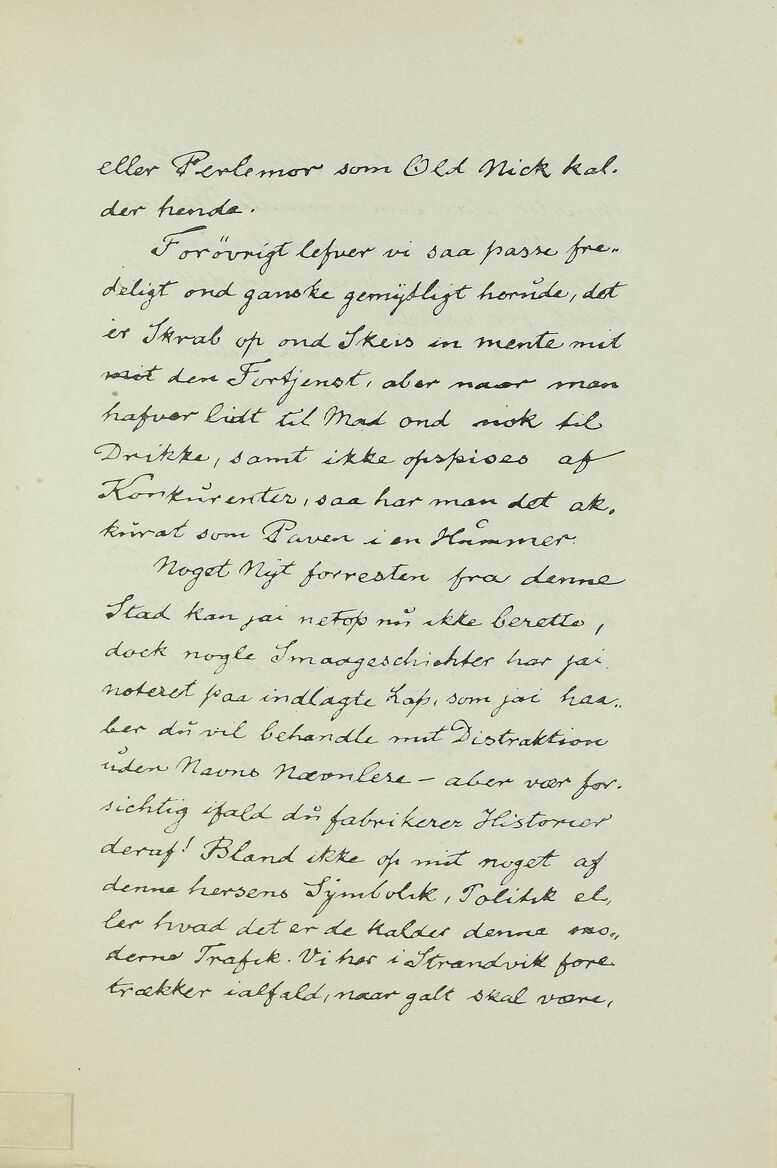 eller Perlemor som Old Nick kal-
der hende.
Forövrigt lefver vi saa passe fre-
deligt ond ganske gemytligt herude, det
er Skral op ond Skeis in mente mit
mit den Fortjenst, aber naar man
hafver lidt til Mad ond nok til
Drikke, samt ikke opspises af
Konkurenter, saa har man det ak-
kurat som Paven i en Hummer.
Noget Nyt forresten fra denne
Stad kan jai netop nu ikke berette,
dock nogle Smaageschichter har jai
noteret paa indlagte Lap, som jai haa-
ber du vil behandle mit Distraktion
uden Navns Nævnlese – aber vær for-
sichtig ifald du fabrikerer Historier
deraf! Bland ikke op mit noget af
denne hersens Symbolik, Politik el-
ler hvad det er de kalder denne mo-
derne Trafik. Vi her i Strandvik fore
trækker ialfald, naar galt skal være,